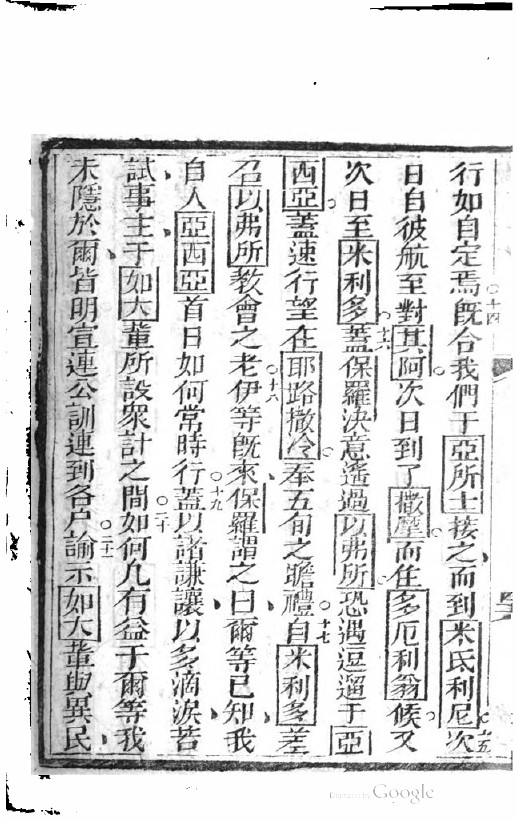 行如自定焉○十四既合我們于亞所士接之而到米氐利尼○十五次
日自彼航至對其阿次日到了撒摩而住多厄利翁候又
次日至米利多○十六蓋保羅決意遙過以弗所恐遇逗遛于亞
西亞蓋速行望在耶路撒冷奉五旬之瞻禮○十七自米利多差
召以弗所教會之老伊等○十八既來保羅謂之曰爾等已知我
自入亞西亞首日如何常時行○十九蓋以諸謙讓以多滴淚苦
試事主于如大輩所設眾計之間○二十如何凡有益于爾等我
未隱於爾皆明宣連公訓連到各戶○二一諭示如大輩與異民
Digitized by Google